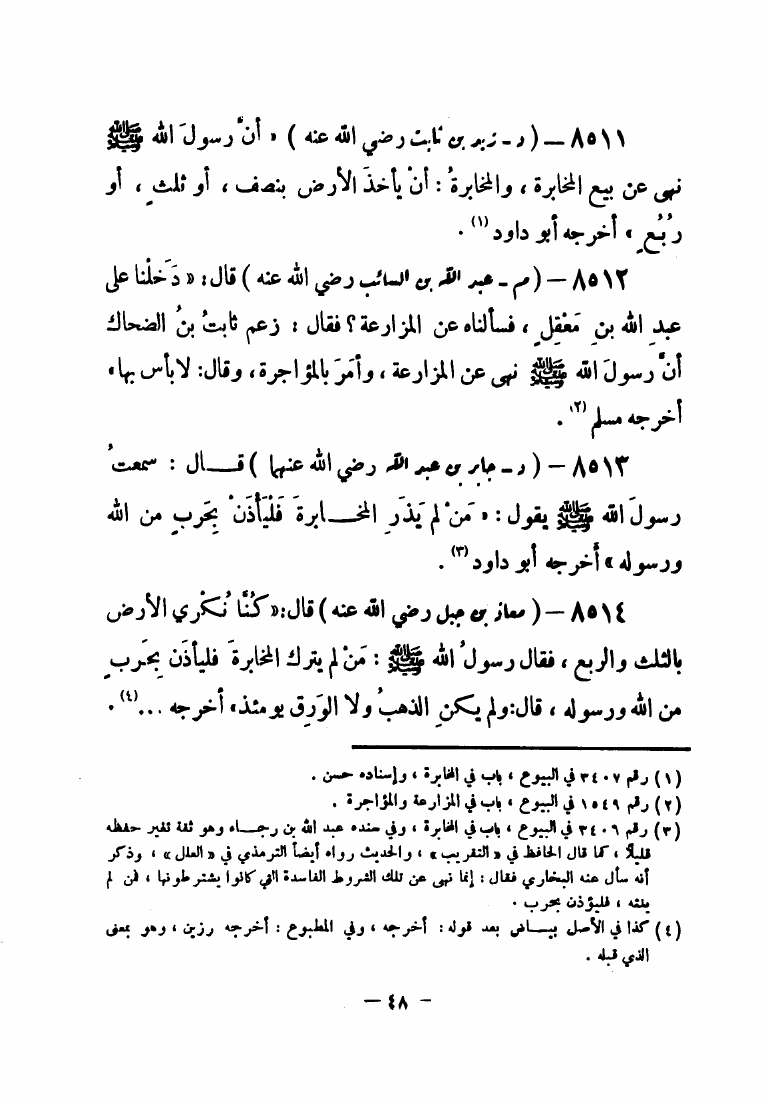 ٨٥١١ — ( د - زيد بن ثابت رضي الله عنه ) « أنَّ رسولَ الله ﷺ
نهى عن بيع المخابرة ، والمخابرةُ : أنْ يأخذَ الأرض بنصف ، أو ثلثٍ ، أو
رُبُعٍ » أخرجه أبو داود (١) .
٨٥١٢ — ( م - عبد الله بن السائب رضي الله عنه ) قال : « دَخلْنا على
عبدِ الله بنِ مَعْقِلٍ ، فسألناه عن المزارعة ؟ فقال : زعم ثابتُ بنُ الضحاك
أنَّ رسولَ الله ﷺ نهى عن المزارعة ، وأمَرَ بالمؤاجرة ، وقال : لا بأس بها »
أخرجه مسلم (٢) .
٨٥١٣ — ( د - جابر بن عبد الله رضي الله عنهما ) قـــال : سمعتُ
رسولَ الله ﷺ يقول : « مَنْ لم يَذَرِ المخـــابرةَ فَلْيَأْذَنْ بِحَربٍ من الله
ورسوله » أخرجه أبو داود (٣) .
٨٥١٤ — ( معاذ بن جبل رضي الله عنه ) قال : « كُنَّا نُكْري الأرض
بالثلث والربع ، فقال رسولُ الله ﷺ : مَنْ لم يترك المخابرةَ فليأذَن بِحَربٍ
من الله ورسوله ، قال : ولم يكنِ الذهبُ ولا الوَرِق يومئذ » أخرجه ... (٤) .
(١) رقم ٣٤٠٧ في البيوع ، باب في المخابرة ، وإسناده حسن .
(٢) رقم ١٥٤٩ في البيوع ، باب في المزارعة والمؤاجرة .
(٣) رقم ٣٤٠٦ في البيوع ، باب في المخابرة ، وفي سنده عبد الله بن رجـــاء وهو ثقة تغير حفظه
قليلاً ، كما قال الحافظ في « التقريب » ، والحديث رواه أيضاً الترمذي في « العلل » ، وذكر
أنه سأل عنه البخاري فقال : إنما نهى عن تلك الشروط الفاسدة التي كانوا يشترطونها ، فمن لم
ينته ، فليؤذن بحرب .
(٤) كذا في الأصل بيـــاض بعد قوله : أخرجه ، وفي المطبوع : أخرجه رزين ، وهو بمعنى
الذي قبله .
— ٤٨ —